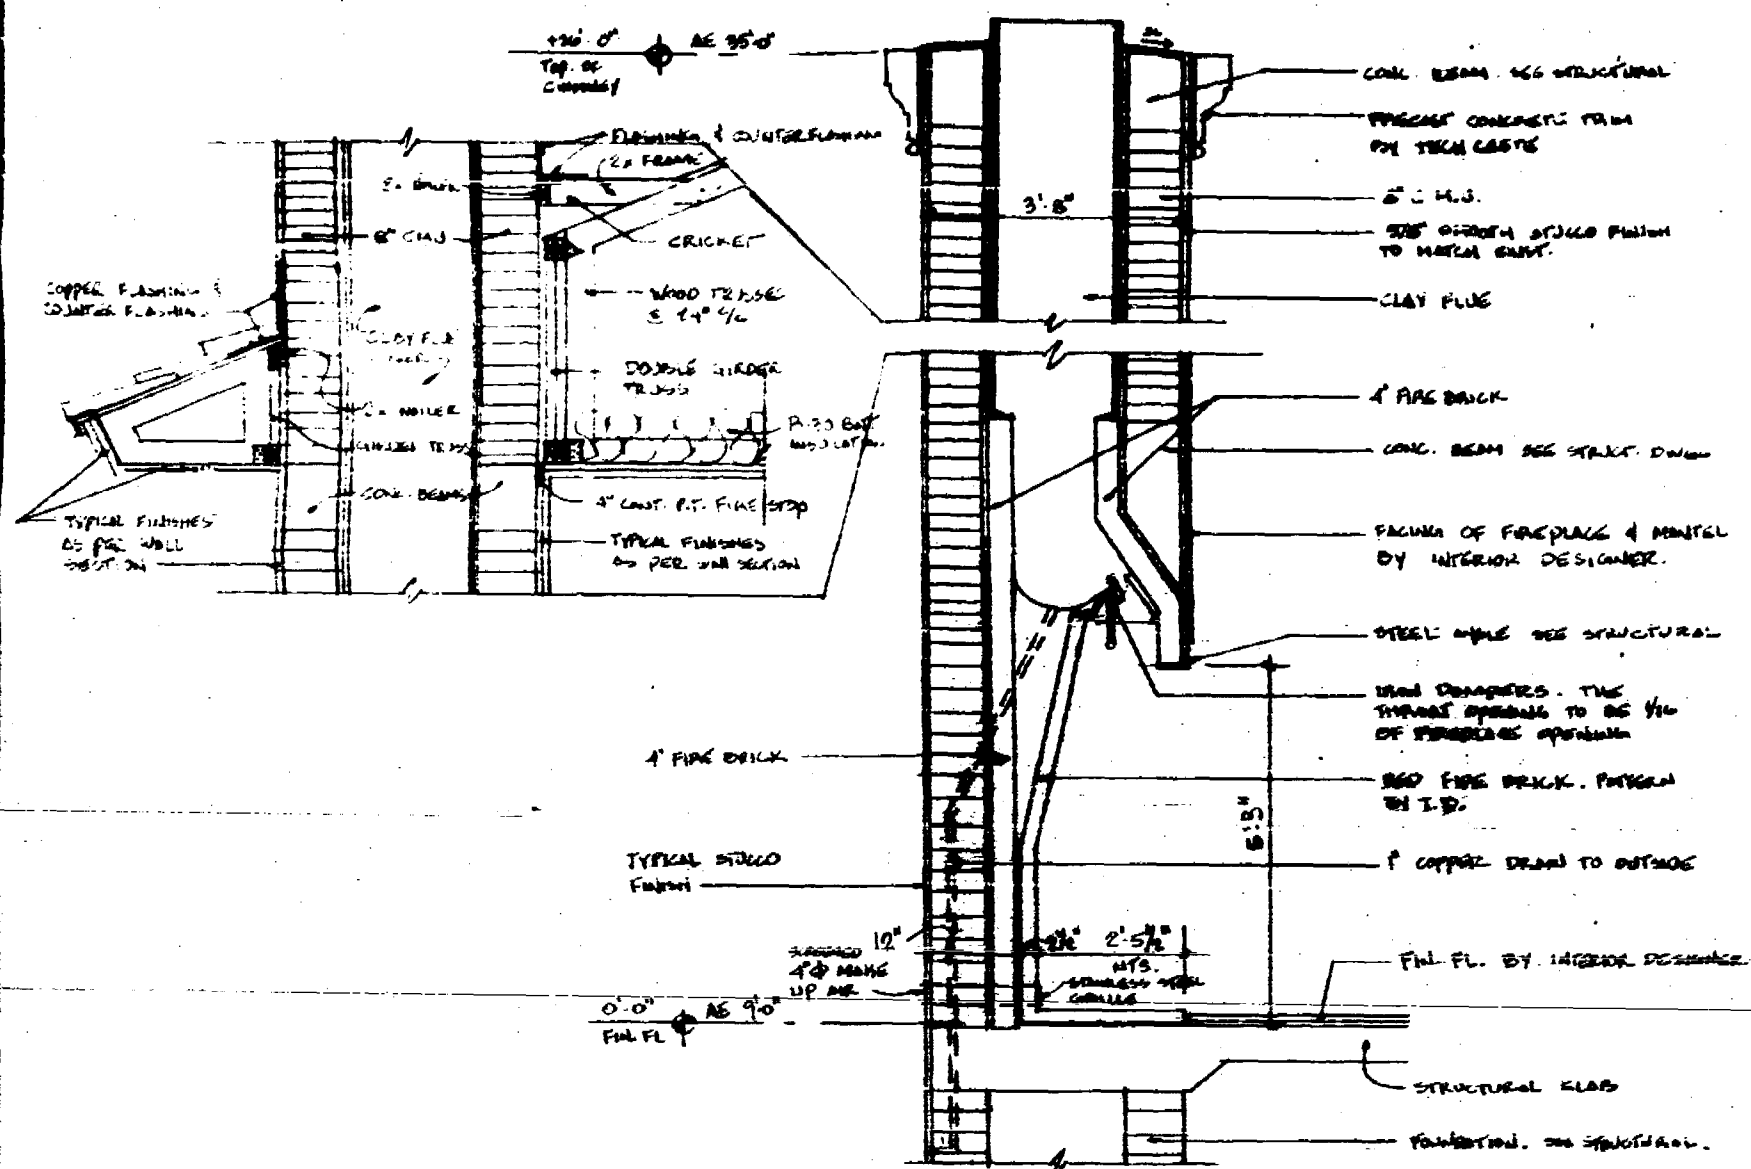 +26'-0" AE 35'-0"
TOP OF
CHIMNEY
FLASHING & COUNTERFLASHING
2x FRAME
8" CMU
CRICKET
COPPER FLASHING &
COUNTER FLASHING
WOOD TRUSSES
@ 24" o/c
CLAY FLUE
DOUBLE GIRDER
TRUSS
2x NAILER
R-30 BATT
INSULATION
CONC. BEAMS
4" CONT. P.T. FIRE STOP
TYPICAL FINISHES
AS PER WALL
SECTION
TYPICAL FINISHES
AS PER WALL SECTION
CONC. BEAM SEE STRUCTURAL
PRECAST CONCRETE TRIM
BY TECH CRETE
8" C.M.U.
3'-8"
5/8" SMOOTH STUCCO FINISH
TO MATCH EXIST.
CLAY FLUE
4" FIRE BRICK
CONC. BEAM SEE STRUCT. DWGS
FACING OF FIREPLACE & MANTEL
BY INTERIOR DESIGNER.
STEEL ANGLE SEE STRUCTURAL
DAMPERS. THE
THROAT OPENING TO BE 1/16
OF FIREPLACE OPENING
4" FIRE BRICK
RED FIRE BRICK. PATTERN
BY I.D.
TYPICAL STUCCO
FINISH
1" COPPER DRAIN TO OUTSIDE
12"
2'-5½"
NTS.
4"Φ MAKE
UP AIR
STAINLESS STEEL
GRILLE
FIN. FL. BY INTERIOR DESIGNER
0'-0" AE 9'-0"
FIN. FL
STRUCTURAL SLAB
FOUNDATION. SEE STRUCTURAL.